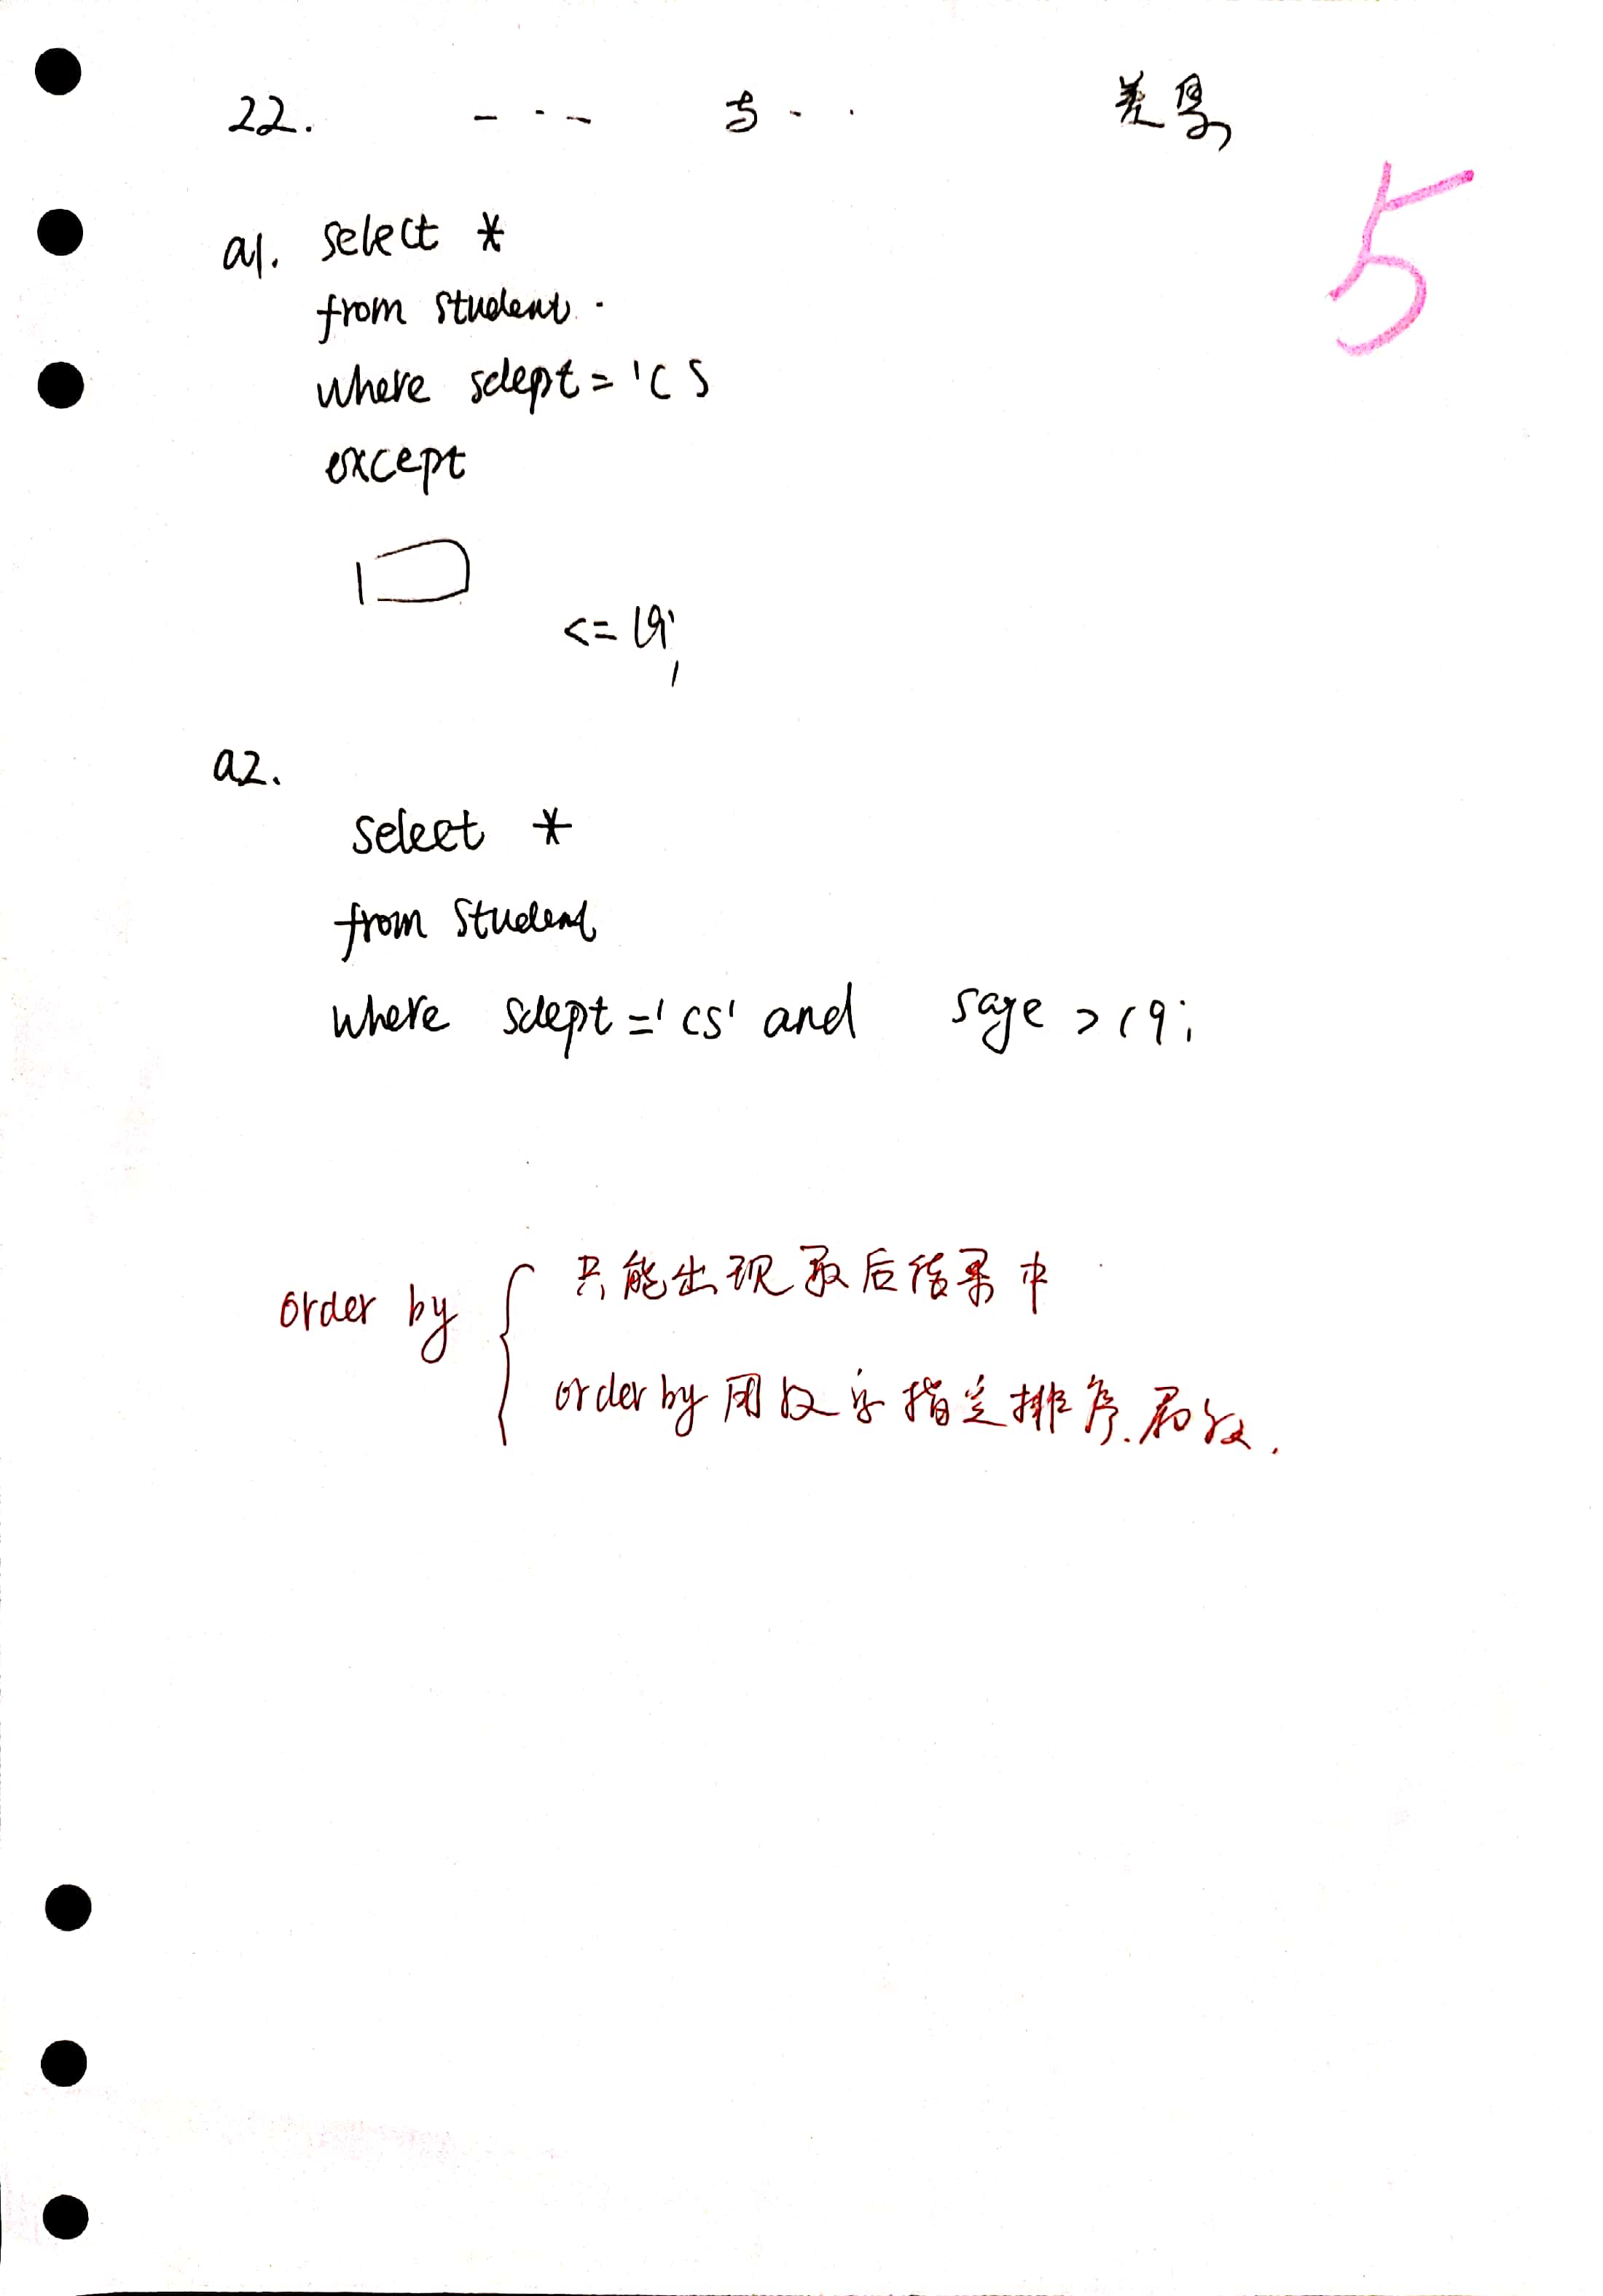 22. - - - - 与 - - 差集
5
a1. select *
from student
where sdept = 'CS
except
<= 19;
a2.
select *
from student
where sdept = 'CS' and sage > 19;
order by
只能出现最后结果中
order by 用数字指定排序.